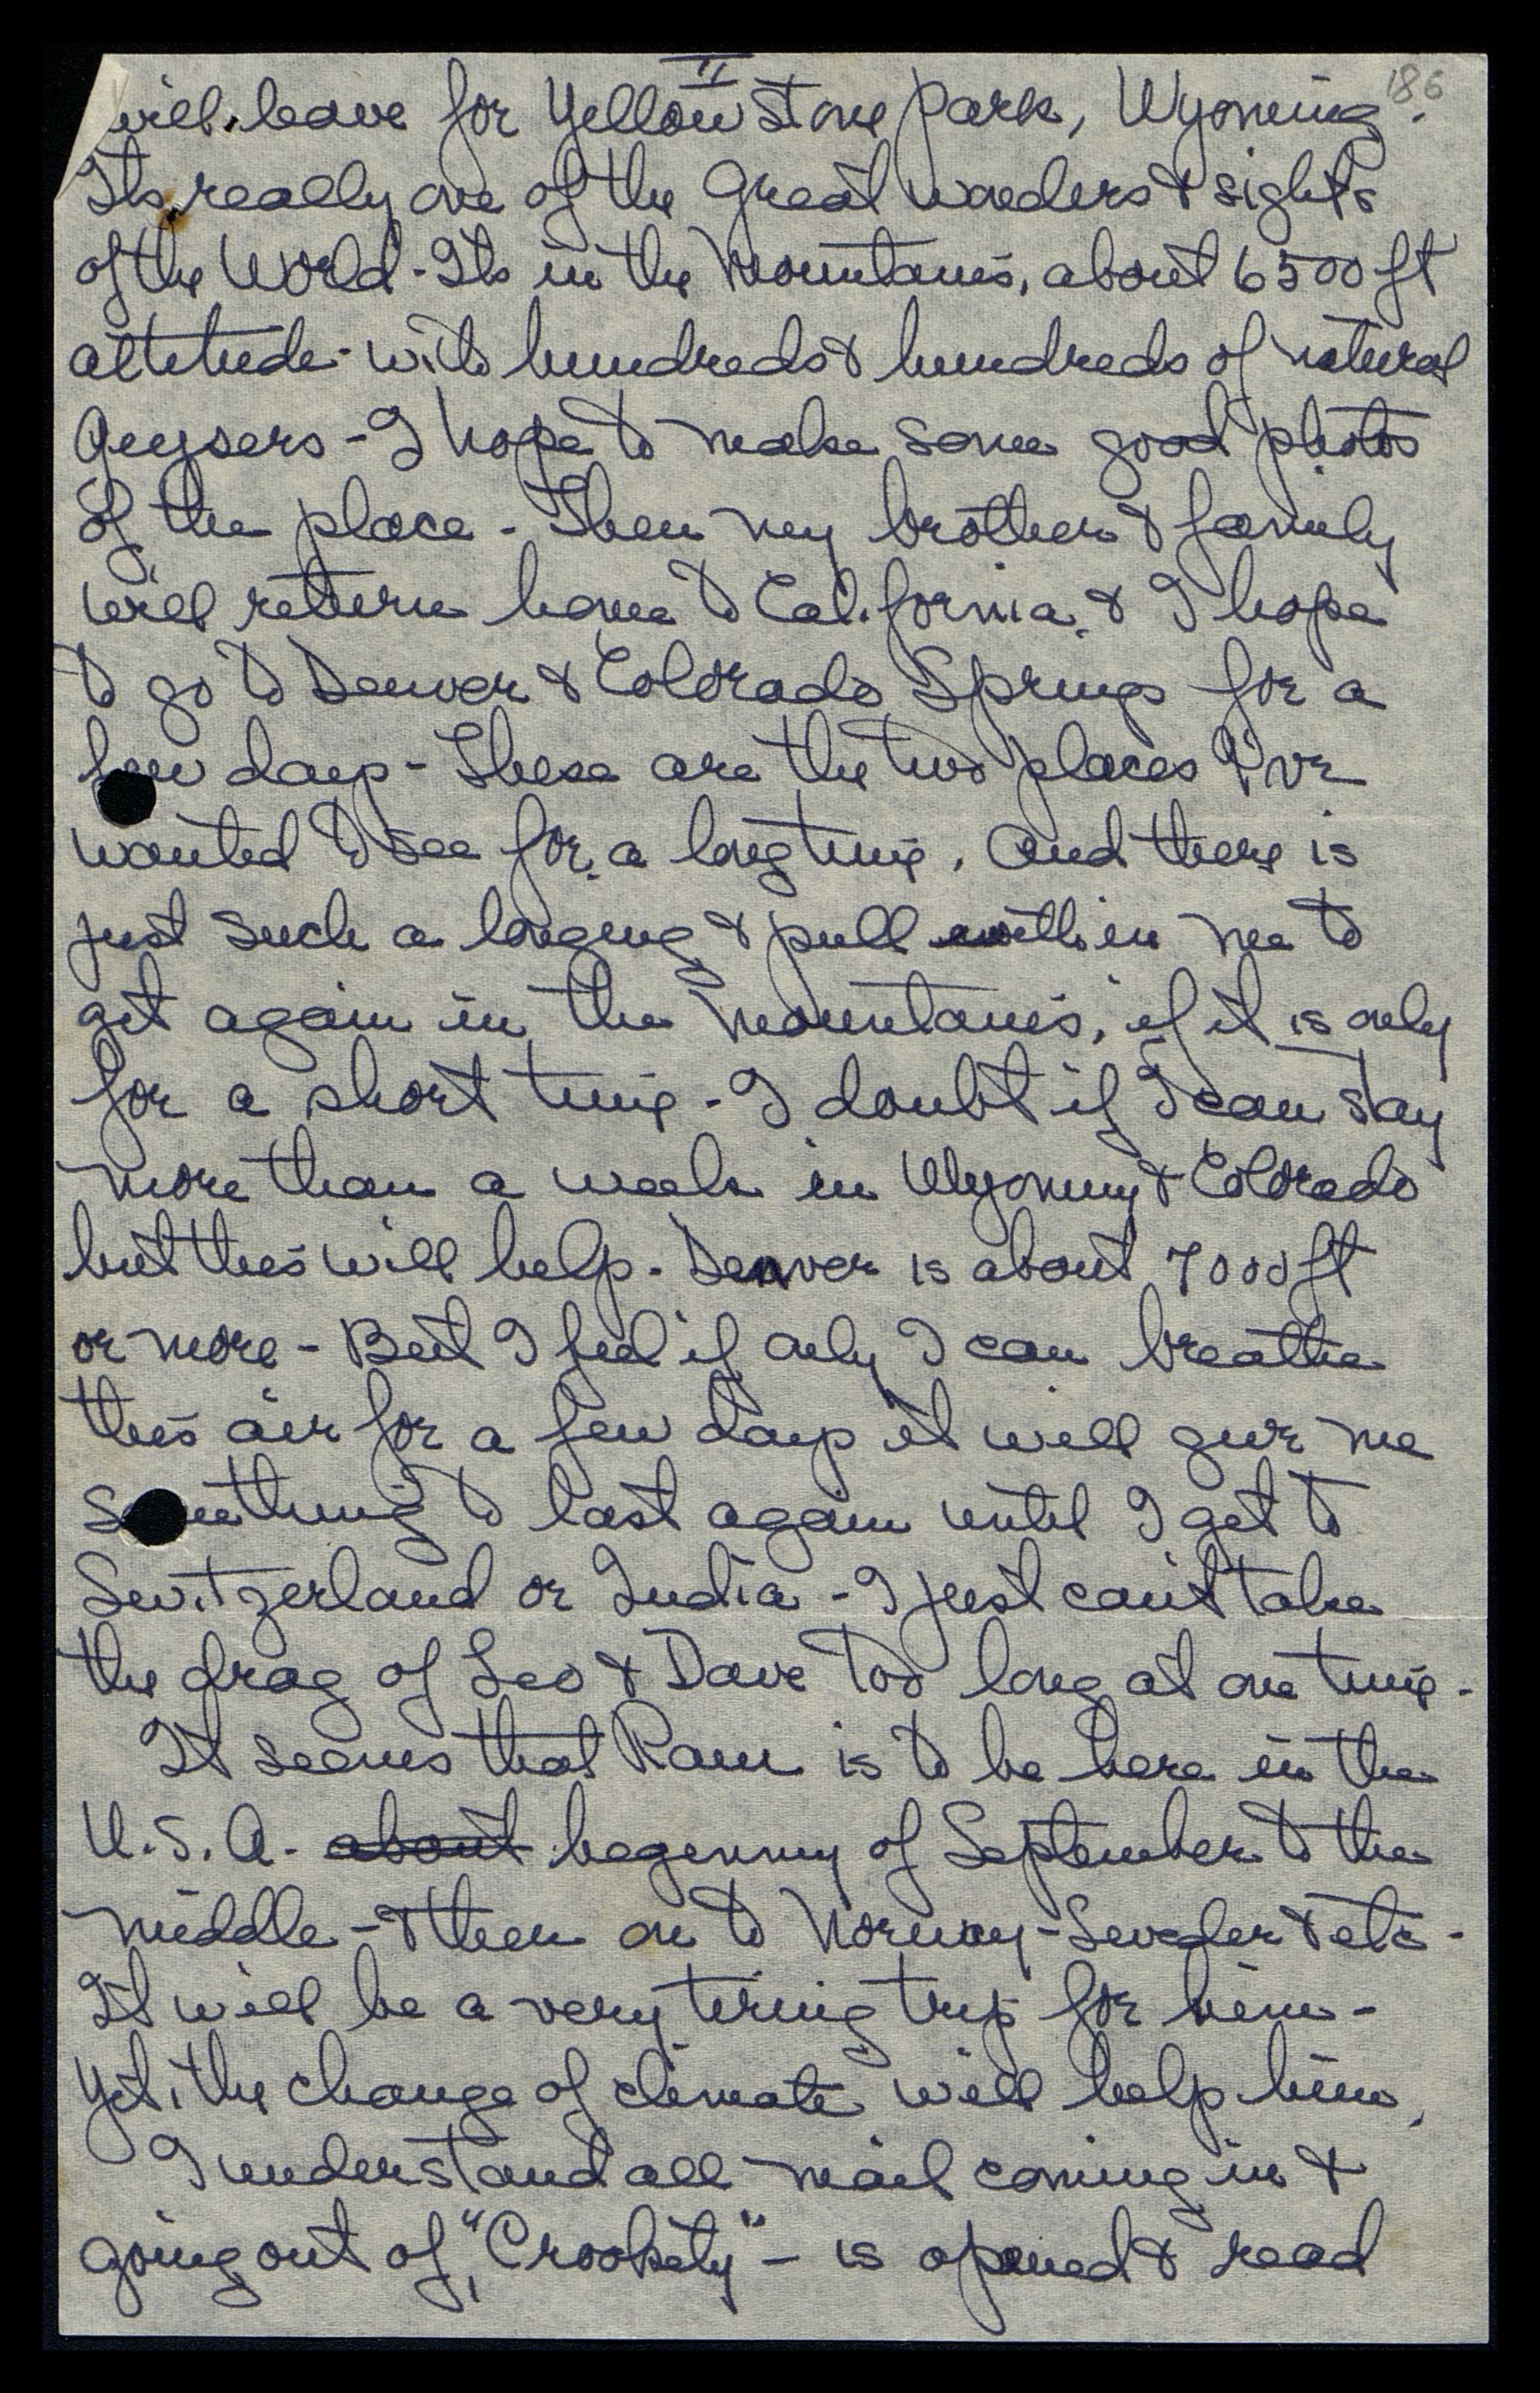 II
186
will leave for Yellowstone Park, Wyoming.
Its really one of the great wonders & sights
of the World - Its in the Mountains, about 6500 ft
altitude - with hundreds & hundreds of natural
Geysers - I hope to make some good photos
of the place - Then my brother & family
will return home to California, & I hope
to go to Denver & Colorado Springs for a
few days - These are the two places I've
wanted to see for a long time, and there is
just such a longing & pull within me to
get again in the Mountains, if it is only
for a short time - I doubt if I can stay
more than a week in Wyoming & Colorado
but this will help - Denver is about 7000 ft
or more - But I feel if only I can breathe
this air for a few days it will give me
something to last again until I get to
Switzerland or India - I just can't take
the drag of Leo & Dave too long at one time -
It seems that Ram is to be here in the
U.S.A. about beginning of September to the
middle - & then on to Norway - Sweden & etc -
It will be a very tiring trip for him -
Yet, the change of climate will help him,
I understand all mail coming in &
going out of "Crookity" - is opened & read